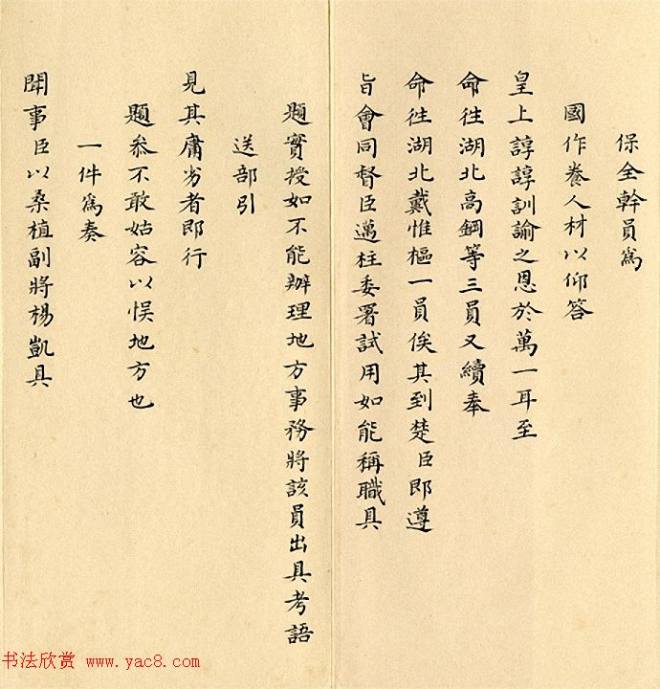 保全幹員爲
國作養人材以仰答
皇上諄諄訓諭之恩於萬一耳至
命徃湖北高鋼等三員又續奉
命徃湖北戴惟樞一員俟其到楚臣即遵
旨會同督臣邁柱委署試用如能稱職具
題實授如不能辦理地方事務將該員出具考語
送部引
見其庸劣者即行
題叅不敢姑容以悮地方也
一件爲奏
聞事臣以桑植副將楊凱具
书法欣赏 www.yac8.com